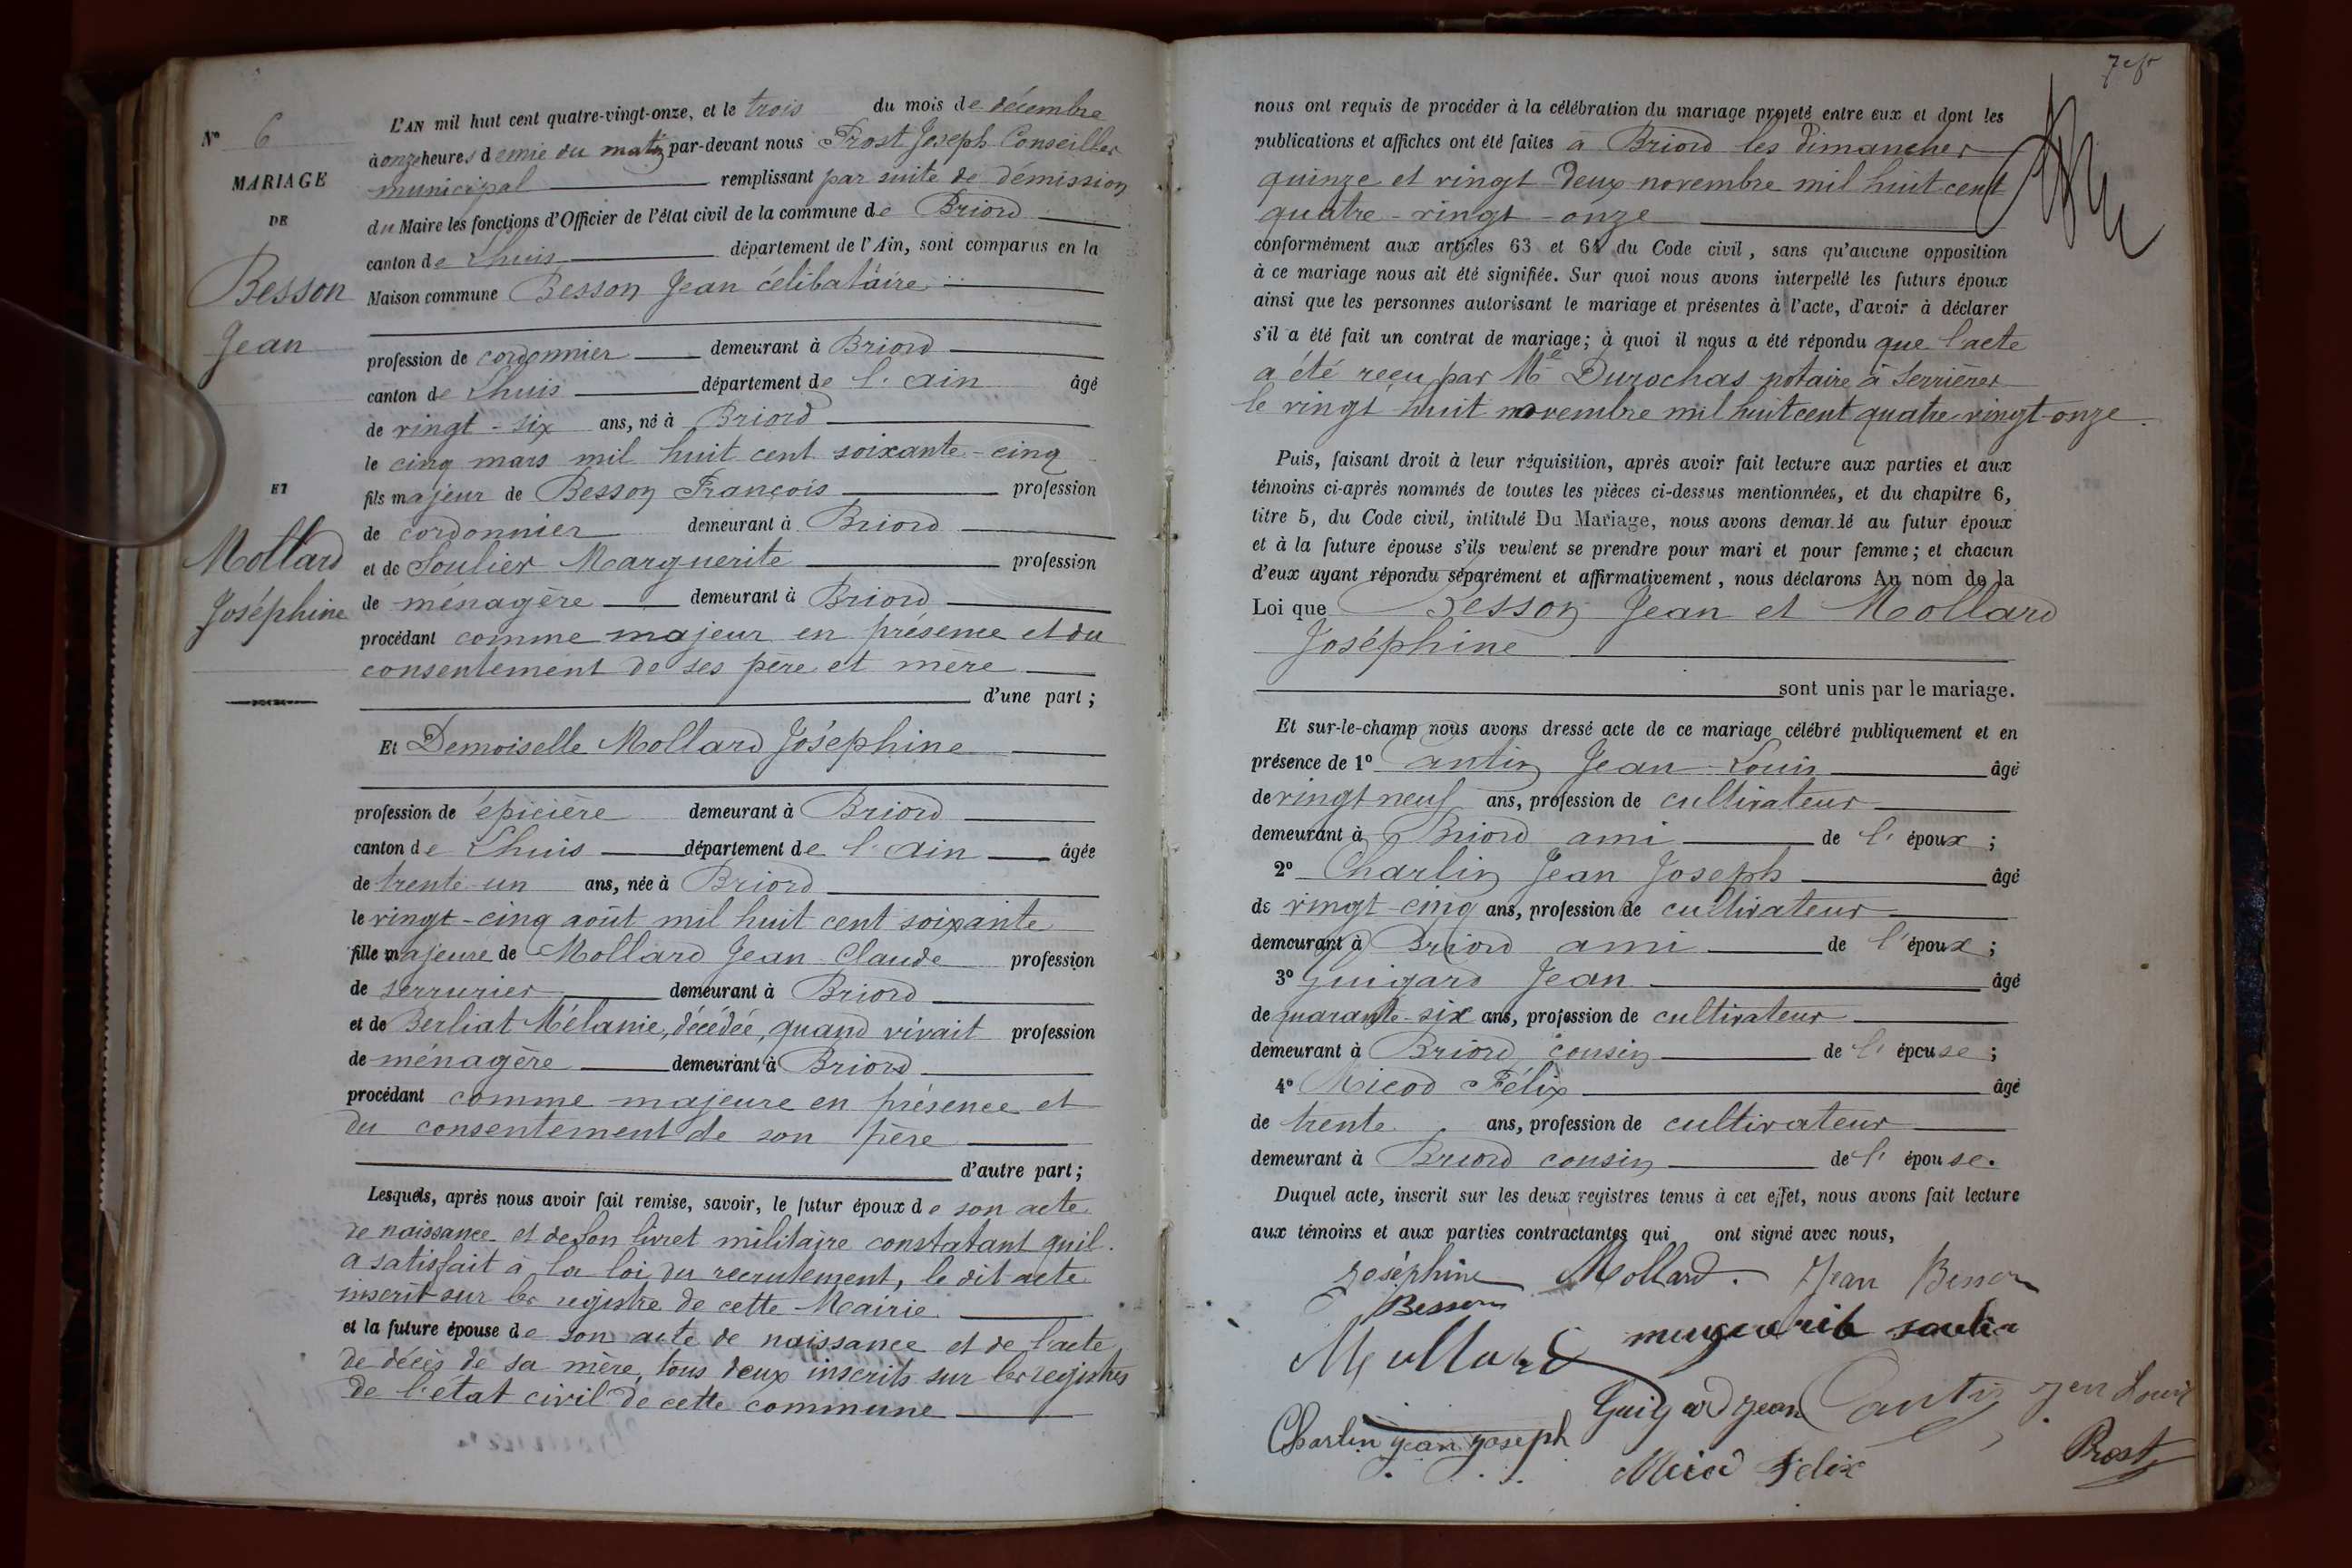 N° 6
MARIAGE
DE
Besson
Jean
ET
Mollard
Joséphine
L'AN mil huit cent quatre-vingt-onze, et le trois du mois de décembre
à onze heures demie du matin par-devant nous Prost Joseph Conseiller
municipal remplissant par suite de démission
du Maire les fonctions d'Officier de l'état civil de la commune de Briord
canton de Lhuis département de l'Ain, sont comparus en la
Maison commune Besson Jean célibataire
profession de cordonnier demeurant à Briord
canton de Lhuis département de l'Ain âgé
de vingt-six ans, né à Briord
le cinq mars mil huit cent soixante-cinq
fils majeur de Besson François profession
de cordonnier demeurant à Briord
et de Soulier Marguerite profession
de ménagère demeurant à Briord
procédant comme majeur en présence et du
consentement de ses père et mère
d'une part ;
Et Demoiselle Mollard Joséphine
profession de épicière demeurant à Briord
canton de Lhuis département de l'Ain âgée
de trente-un ans, née à Briord
le vingt-cinq août mil huit cent soixante
fille majeure de Mollard Jean Claude profession
de serrurier demeurant à Briord
et de Berliat Mélanie, décédée, quand vivait profession
de ménagère demeurant à Briord
procédant comme majeure en présence et
du consentement de son père
d'autre part ;
Lesquels, après nous avoir fait remise, savoir, le futur époux de son acte
de naissance et de son livret militaire constatant qu'il
a satisfait à la loi du recrutement, le dit acte
inscrit sur les registre de cette Mairie
et la future épouse de son acte de naissance et de l'acte
de décès de sa mère, tous deux inscrits sur les registres
de l'état civil de cette commune
nous ont requis de procéder à la célébration du mariage projeté entre eux et dont les
publications et affiches ont été faites à Briord les dimanches
quinze et vingt-deux novembre mil huit cent
quatre-vingt-onze
conformément aux articles 63 et 64 du Code civil, sans qu'aucune opposition
à ce mariage nous ait été signifiée. Sur quoi nous avons interpellé les futurs époux
ainsi que les personnes autorisant le mariage et présentes à l'acte, d'avoir à déclarer
s'il a été fait un contrat de mariage ; à quoi il nous a été répondu que l'acte
a été reçu par Me Durochas notaire à Serrières
le vingt huit novembre mil huit cent quatre vingt-onze.
Puis, faisant droit à leur réquisition, après avoir fait lecture aux parties et aux
témoins ci-après nommés de toutes les pièces ci-dessus mentionnées, et du chapitre 6,
titre 5, du Code civil, intitulé Du Mariage, nous avons demandé au futur époux
et à la future épouse s'ils veulent se prendre pour mari et pour femme ; et chacun
d'eux ayant répondu séparément et affirmativement, nous déclarons Au nom de la
Loi que Besson Jean et Mollard
Joséphine
sont unis par le mariage.
Et sur-le-champ nous avons dressé acte de ce mariage célébré publiquement et en
présence de 1° Cantin Jean-Louis âgé
de vingt neuf ans, profession de cultivateur
demeurant à Briord ami de l'époux ;
2° Charlin Jean Joseph âgé
de vingt-cinq ans, profession de cultivateur
demeurant à Briord ami de l'époux ;
3° Guigard Jean âgé
de quarante-six ans, profession de cultivateur
demeurant à Briord cousin de l'épouse ;
4° Micod Félix âgé
de trente ans, profession de cultivateur
demeurant à Briord cousin de l'épouse.
Duquel acte, inscrit sur les deux registres tenus à cet effet, nous avons fait lecture
aux témoins et aux parties contractantes qui ont signé avec nous,
Joséphine Mollard. Jean Besson
Besson
Mollard
Guigard jean Cantin jen Louis
Charlin jean joseph
Micod Félix
Prost